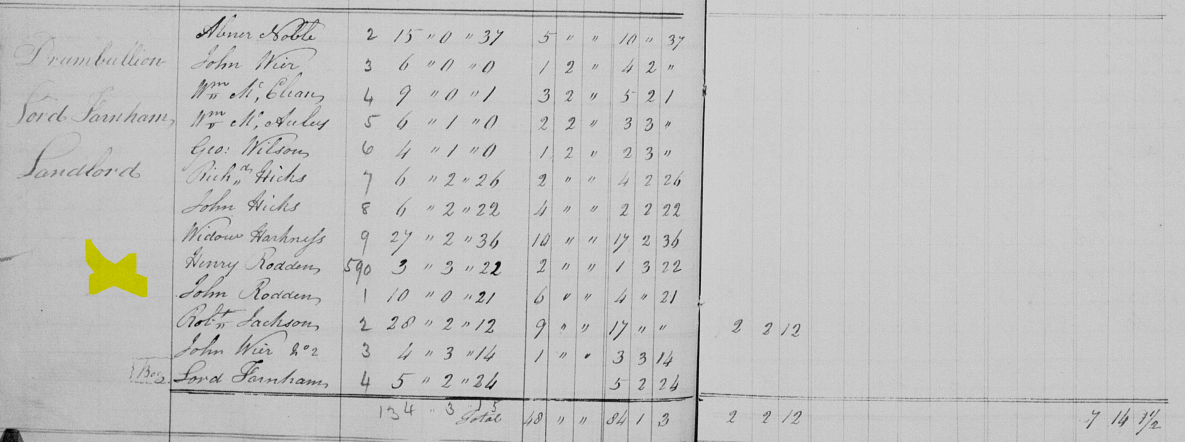 Abner Noble 2 15 " 0 " 37 5 " " 10 " 37
Drumbullion John Wier 3 6 " 0 " 0 1 2 " 4 2 "
Wm Mc, Chan 4 9 " 0 " 1 3 2 " 5 2 1
Lord Farnham, Wm Mc, Auley 5 6 " 1 " 0 2 2 " 3 3 "
Geo: Wilson 6 4 " 1 " 0 1 2 " 2 3 "
Landlord Richd Hicks 7 6 " 2 " 26 2 " " 4 2 26
John Hicks 8 6 " 2 " 22 4 " " 2 2 22
Widow Harkness 9 27 " 2 " 36 10 " " 17 2 36
Henry Rodden 590 3 " 3 " 22 2 " " 1 3 22
John Rodden 1 10 " 0 " 21 6 " " 4 " 21
Robt Jackson 2 28 " 2 " 12 9 " " 17 " " 2 2 12
John Wier No 2 3 4 " 3 " 14 1 " " 3 3 14
Bog Lord Farnham 4 5 " 2 " 24 5 2 24
134 " 3 15 Total 48 " " 84 1 3 2 2 12 7 14 1½